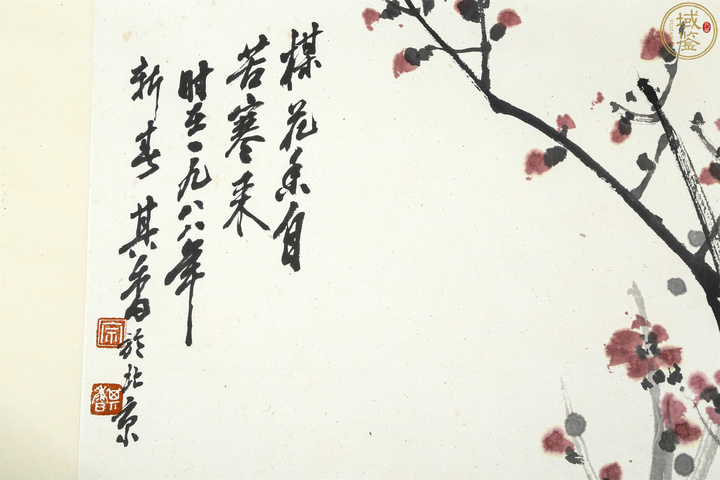 楳花香自
苦寒来
时在一九八八年
新春其香於北京
宗
其香
域鉴